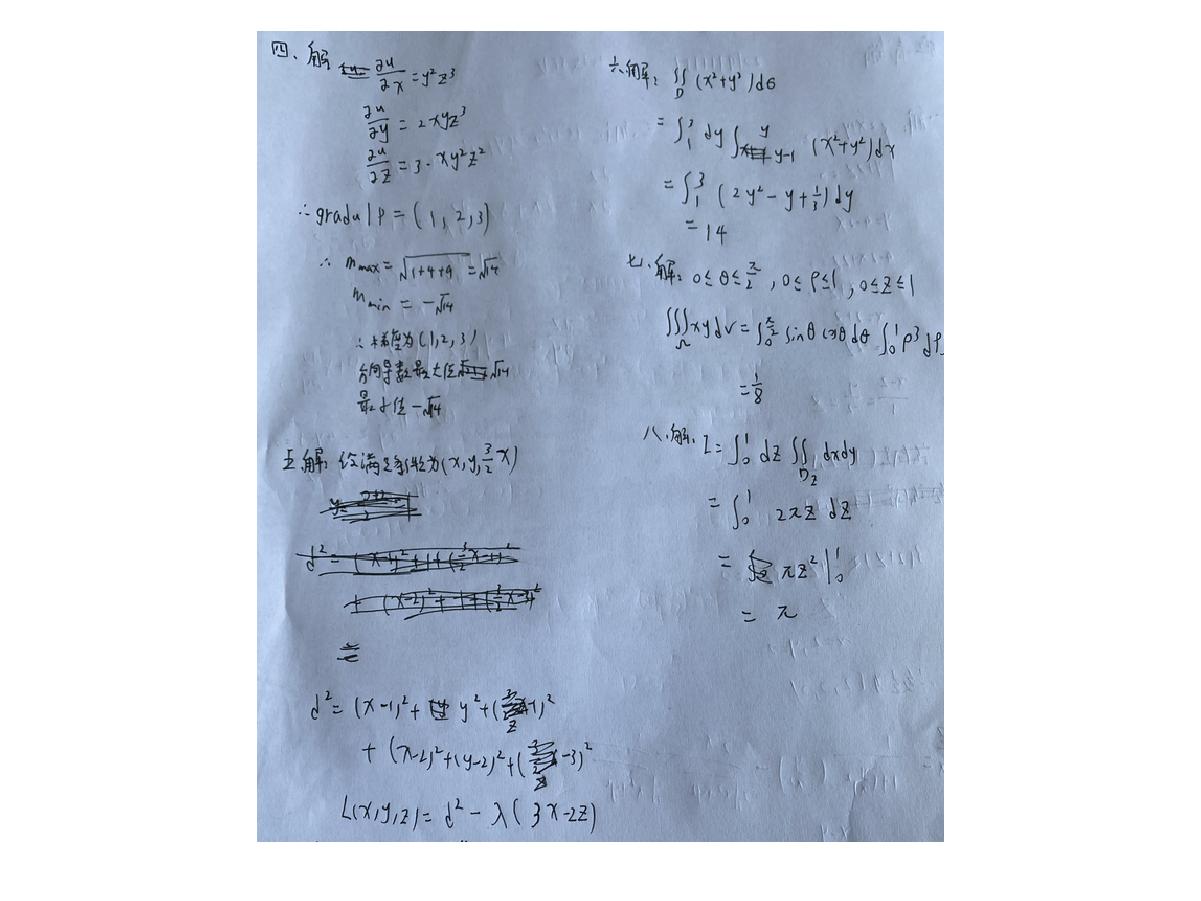 四、解 ∂u/∂x = y²z³
∂u/∂y = 2xyz³
∂u/∂z = 3·xy²z²
∴ gradu|P = (1, 2, 3)
∴ m max = √(1+4+9) = √14
m min = -√14
∴ 梯度为(1,2,3)
方向导数最大值 √14
最小值 -√14
五 解: 设满足条件为(x, y, 3/2 x)
d² = (x-1)² + y² + (z-1)²
+ (x-2)² + (y-2)² + (z-3)²
L(x,y,z) = d² - λ(3x-2z)
六、解: ∬_D (x²+y²)dσ
= ∫₁³ dy ∫_{y-1}^{y} (x²+y²)dx
= ∫₁³ (2y² - y + 1/3) dy
= 14
七、解: 0≤θ≤π/2, 0≤ρ≤1, 0≤z≤1
∭_Ω xy dv = ∫₀^{π/2} sinθ cosθ dθ ∫₀¹ ρ³ dρ
= 1/8
八、解. I = ∫₀¹ dz ∬_{Dz} dxdy
= ∫₀¹ 2πz dz
= πz² |₀¹
= π